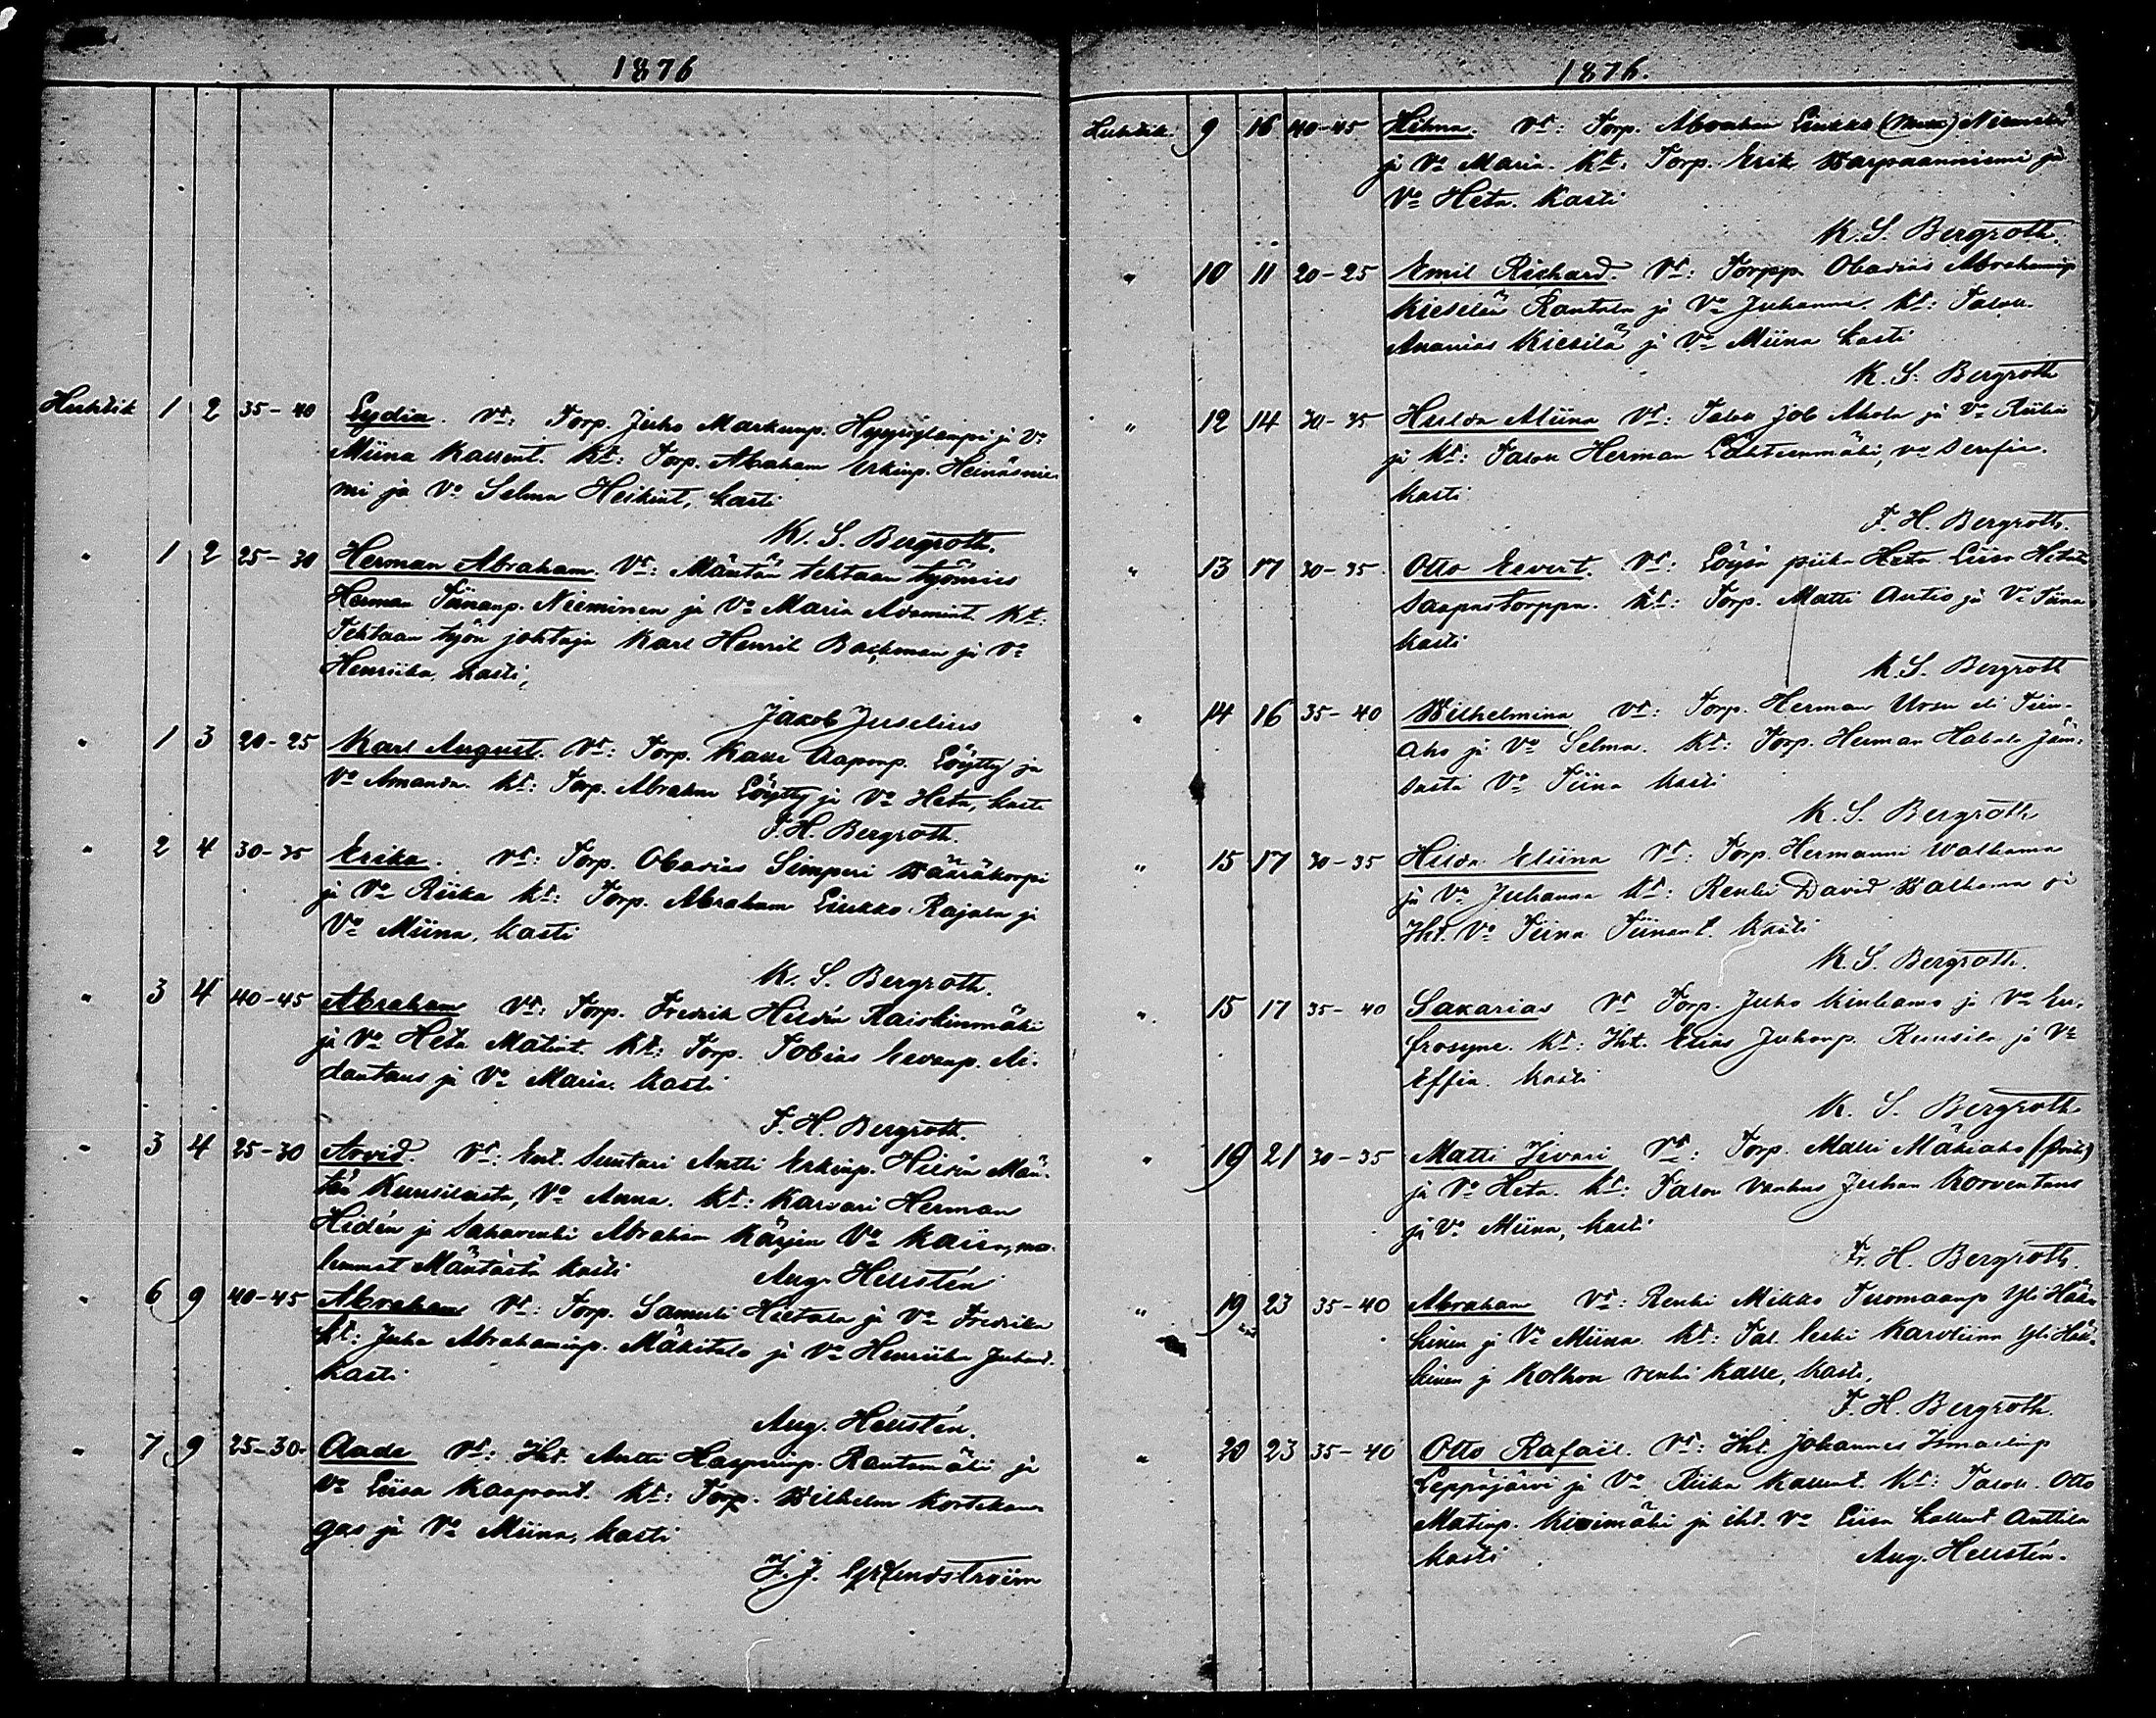 1876
Huhtik 1 2 35-40 Lydia. Vt: Torp. Juho Markunp. Hyyrylampi ja Vo
Miina Kallent. Kt: Torp. Abraham Erkinp. Heinäsnie-
mi ja Vo Selma Heikint, kasti
K. S. Bergroth.
" 1 2 25-30 Herman Abraham. Vt: Mäntän tehtaan työmies
Herman Tiinanp. Nieminen ja Vo Maria Adamint. Kt:
Tehtaan työn johtaja Karl Henrik Backman ja Vo
Henriika, kasti,
Jakob Juselius
" 1 3 20-25 Karl August. Vt: Torp. Kalle Aaponp. Löytty ja
Vo Amanda. Kt: Torp. Abraham Löytty ja Vo Heta, kasti
F. H. Bergroth.
" 2 4 30-35 Erika. Vt: Torp. Obadias Simperi Wääräkorpi
ja Vo Riika Kt: Torp. Abraham Liukko Rajala ja
Vo Miina, kasti
K. S. Bergroth.
" 3 4 40-45 Abraham Vt: Torp. Fredrik Hildén Raiskinmäki
ja Vo Heta Matint. Kt: Torp. Tobias Eevanp.
ja Vo Maria. kasti
F. H. Bergroth.
" 3 4 25-30 Arvid. Vt: Ent. Suutari Antti Erkinp. Hildén Män-
tän Kuusilasta, Vo Anna. Kt: Karvari Herman
Hidén ja Saharenki Abraham Kärjen Vo Kaisa, mo-
lemmat Mäntästä kasti Aug. Hellstén
" 6 9 40-45 Abraham Vt: Torp. Samuli Hietala ja Vo Fredrika
Kt: Juha Abrahaminp. Mäkitalo ja Vo Henriika Juhant.
kasti
Aug. Hellstén.
" 7 9 25-30. Aade Vt: Iht. Antti Kasperinp. Rautamäki ja
Vo Liisa Kaapront. Kt: Torp. Wilhelm Kortekan-
gas ja Vo Miina, kasti
J. J. Grundström
1876.
Huhtik. 9 16 40-45 Hilma. Vt: Torp. Abraham Liukko Niemelä
ja Vo Maria. Kt: Torp. Erik Warpaanniemi ja
Vo Heta. kasti
K. S. Bergroth.
" 10 11 20-25 Emil Richard. Vt: Torpp. Obadias Abrahaminp
Kieselän Rantala ja Vo Juhanna. Kt: Talok.
Ananias Kieselä ja Vo Miina kasti
K. S. Bergroth
" 12 14 30-35 Hulda Miina Vt: Talok Job Ahola ja Vo Riika
ja Kt: Talok Herman Lähteenmäki, Vo Serafia.
kasti
F. H. Bergroth.
" 13 17 30-35 Otto Eevert. Vt: Löysä piika Heta Liisa
Saapastorppa. Kt: Torp. Matti Autio ja Vo Tiina
kasti
K. S. Bergroth
" 14 16 35-40 Wilhelmina Vt: Torp. Herman Ursu eli Tiin-
aho ja Vo Selma. Kt: Torp. Herman Hakala Jäm-
sästä Vo Tiina kasti
K. S. Bergroth
" 15 17 30-35 Hilda Eliina Vt: Torp. Hermanni Walkama
ja Vo Juhanna Kt: Renki David Walkama ja
Iht. Vo Tiina Tiinant. kasti
K. S. Bergroth.
" 15 17 35-40 Sakarias Vt Torp. Juho Kiukamo ja Vo Eu-
frosyne. Kt: Iht. Elias Juhonp. Kuusila ja Vo
Effia. kasti
K. S. Bergroth.
" 19 21 30-35 Matti Iivari Vt: Torp. Matti Mäkiaho
ja Vo Heta. Kt: Talon vanhus Juhan Korventaus
ja Vo Miina, kasti
F. H. Bergroth.
" 19 23 35-40 Abraham Vt: Renki Mikko Tuomaanp Yli Häk-
kinen ja Vo Miina Kt: Tal. leski Karoliina Yli Häk-
kinen ja Kolhon renki Kalle, kasti,
F. H. Bergroth.
" 20 23 35-40 Otto Rafael. Vt: Iht. Johannes Ismaelinp
Leppäjärvi ja Vo Riika Kallent. Kt: Talok. Otto
Matinp. Kivimäki ja iht. Vo Liisa Kallent Anttila
kasti Aug. Hellstén.